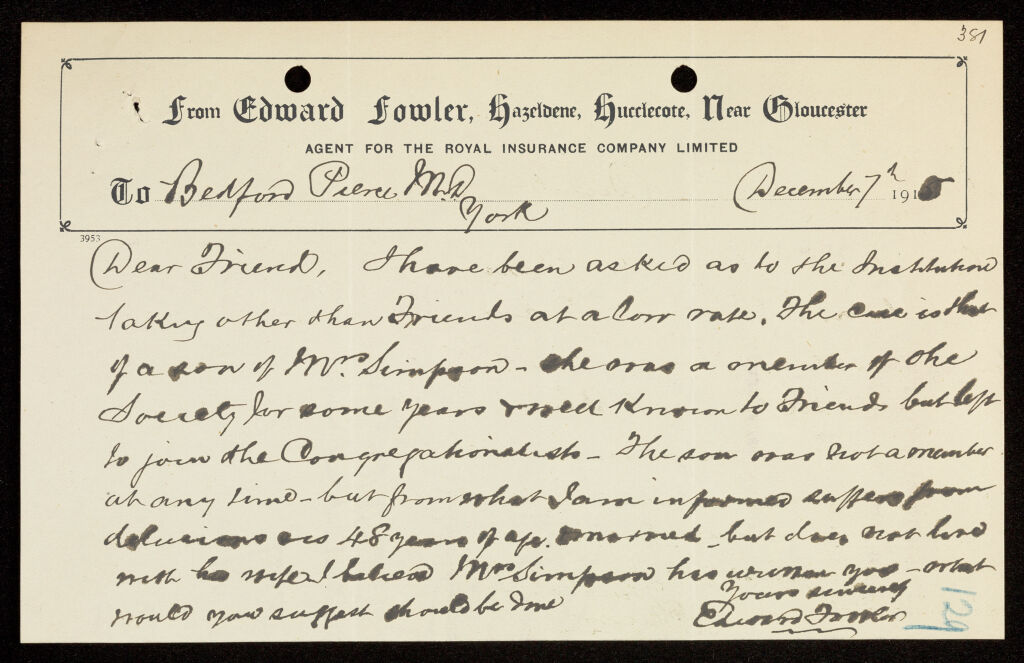 381
From Edward Fowler, Hazeldene, Hucclecote, Near Gloucester
AGENT FOR THE ROYAL INSURANCE COMPANY LIMITED
To Bedford Pierce M.D. December 7th 191
York
3953
Dear Friend, I have been asked as to the Institution
taking other than Friends at a low rate. The case is that
of a son of Mrs. Simpson - she was a member of the
Society for some years & well known to Friends but left
to join the Congregationalists - The son was not a member
at any time - but from what I am informed suffers from
delusions is 48 years of age. married - but does not live
with his wife I believe Mrs Simpson has written you - what
would you suggest should be done
Yours sincerely
Edward Fowler
129